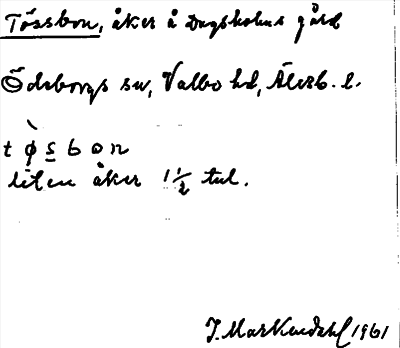 Tössbon, åker å Dagsholms gård
Ödsborgs sn, Valbo hd, Älvsb. l.
t ø̀ s̲ b o n
liten åker 1 1/2 tnl.
J. Markendahl 1961